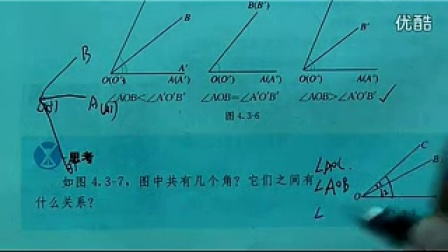 优酷
B
B(B')
B'
B
A'
O(O')
A(A')
O(O')
A(A')
O(O')
A(A')
∠AOB<∠A'O'B'
∠AOB=∠A'O'B'
∠AOB>∠A'O'B' ✓
图 4.3-6
思考
如图 4.3-7,图中共有几个角?它们之间有
什么关系?
∠AOC.
∠AOB
∠
C
B
O